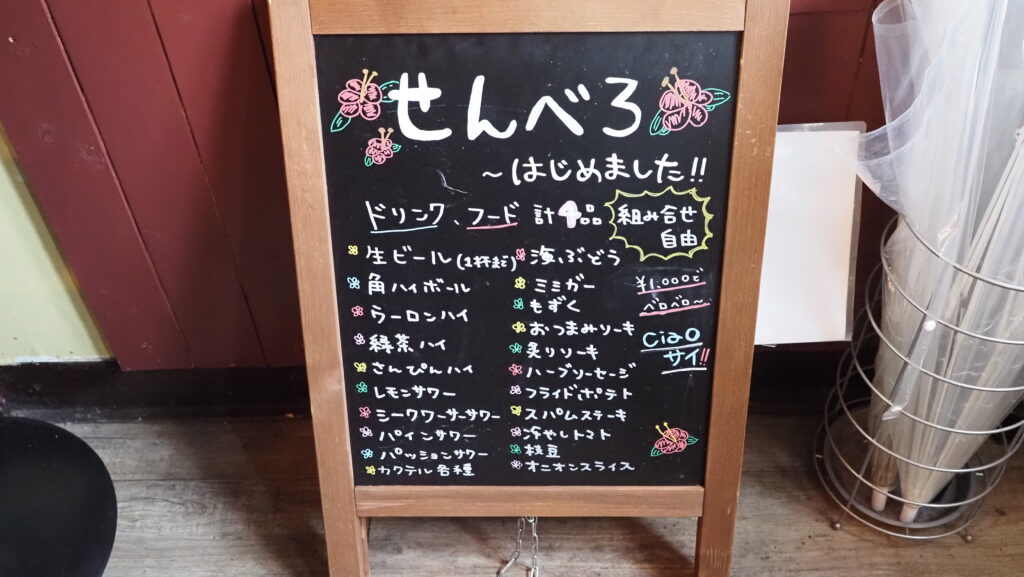 せんべろ
~はじめました!!
ドリンク、フード 計4品
組み合せ
自由
生ビール(1杯まで)
角ハイボール
ウーロンハイ
緑茶ハイ
さんぴんハイ
レモンサワー
シークワーサーサワー
パインサワー
パッションサワー
カクテル各種
海ぶどう
ミミガー
もずく
おつまみソーキ
炙りソーキ
ハーブソーセージ
フライドポテト
スパムステーキ
冷やしトマト
枝豆
オニオンスライス
¥1,000で
ベロベロ〜
ciao
サイ!!